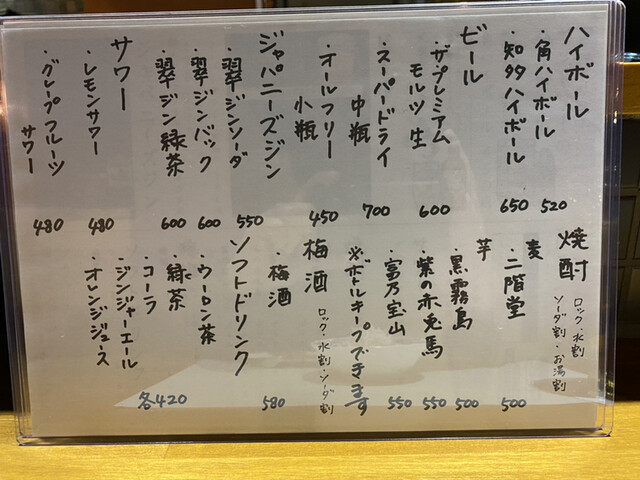 ハイボール
・角ハイボール 520
・知多ハイボール 650
ビール
・ザプレミアム
モルツ 生 600
・スーパードライ
中瓶 700
・オールフリー
小瓶 450
ジャパニーズジン
・翠ジンソーダ 550
・翠ジンバック 600
・翠ジン緑茶 600
サワー
・レモンサワー 480
・グレープフルーツ
サワー 480
焼酎 ロック・水割
ソーダ割・お湯割
麦
・二階堂 500
芋
・黒霧島 500
・紫の赤兎馬 550
・富乃宝山 550
※ボトルキープできます
梅酒 ロック・水割・ソーダ割
・梅酒 580
ソフトドリンク
・ウーロン茶
・緑茶
・コーラ
・ジンジャーエール
・オレンジジュース
各420